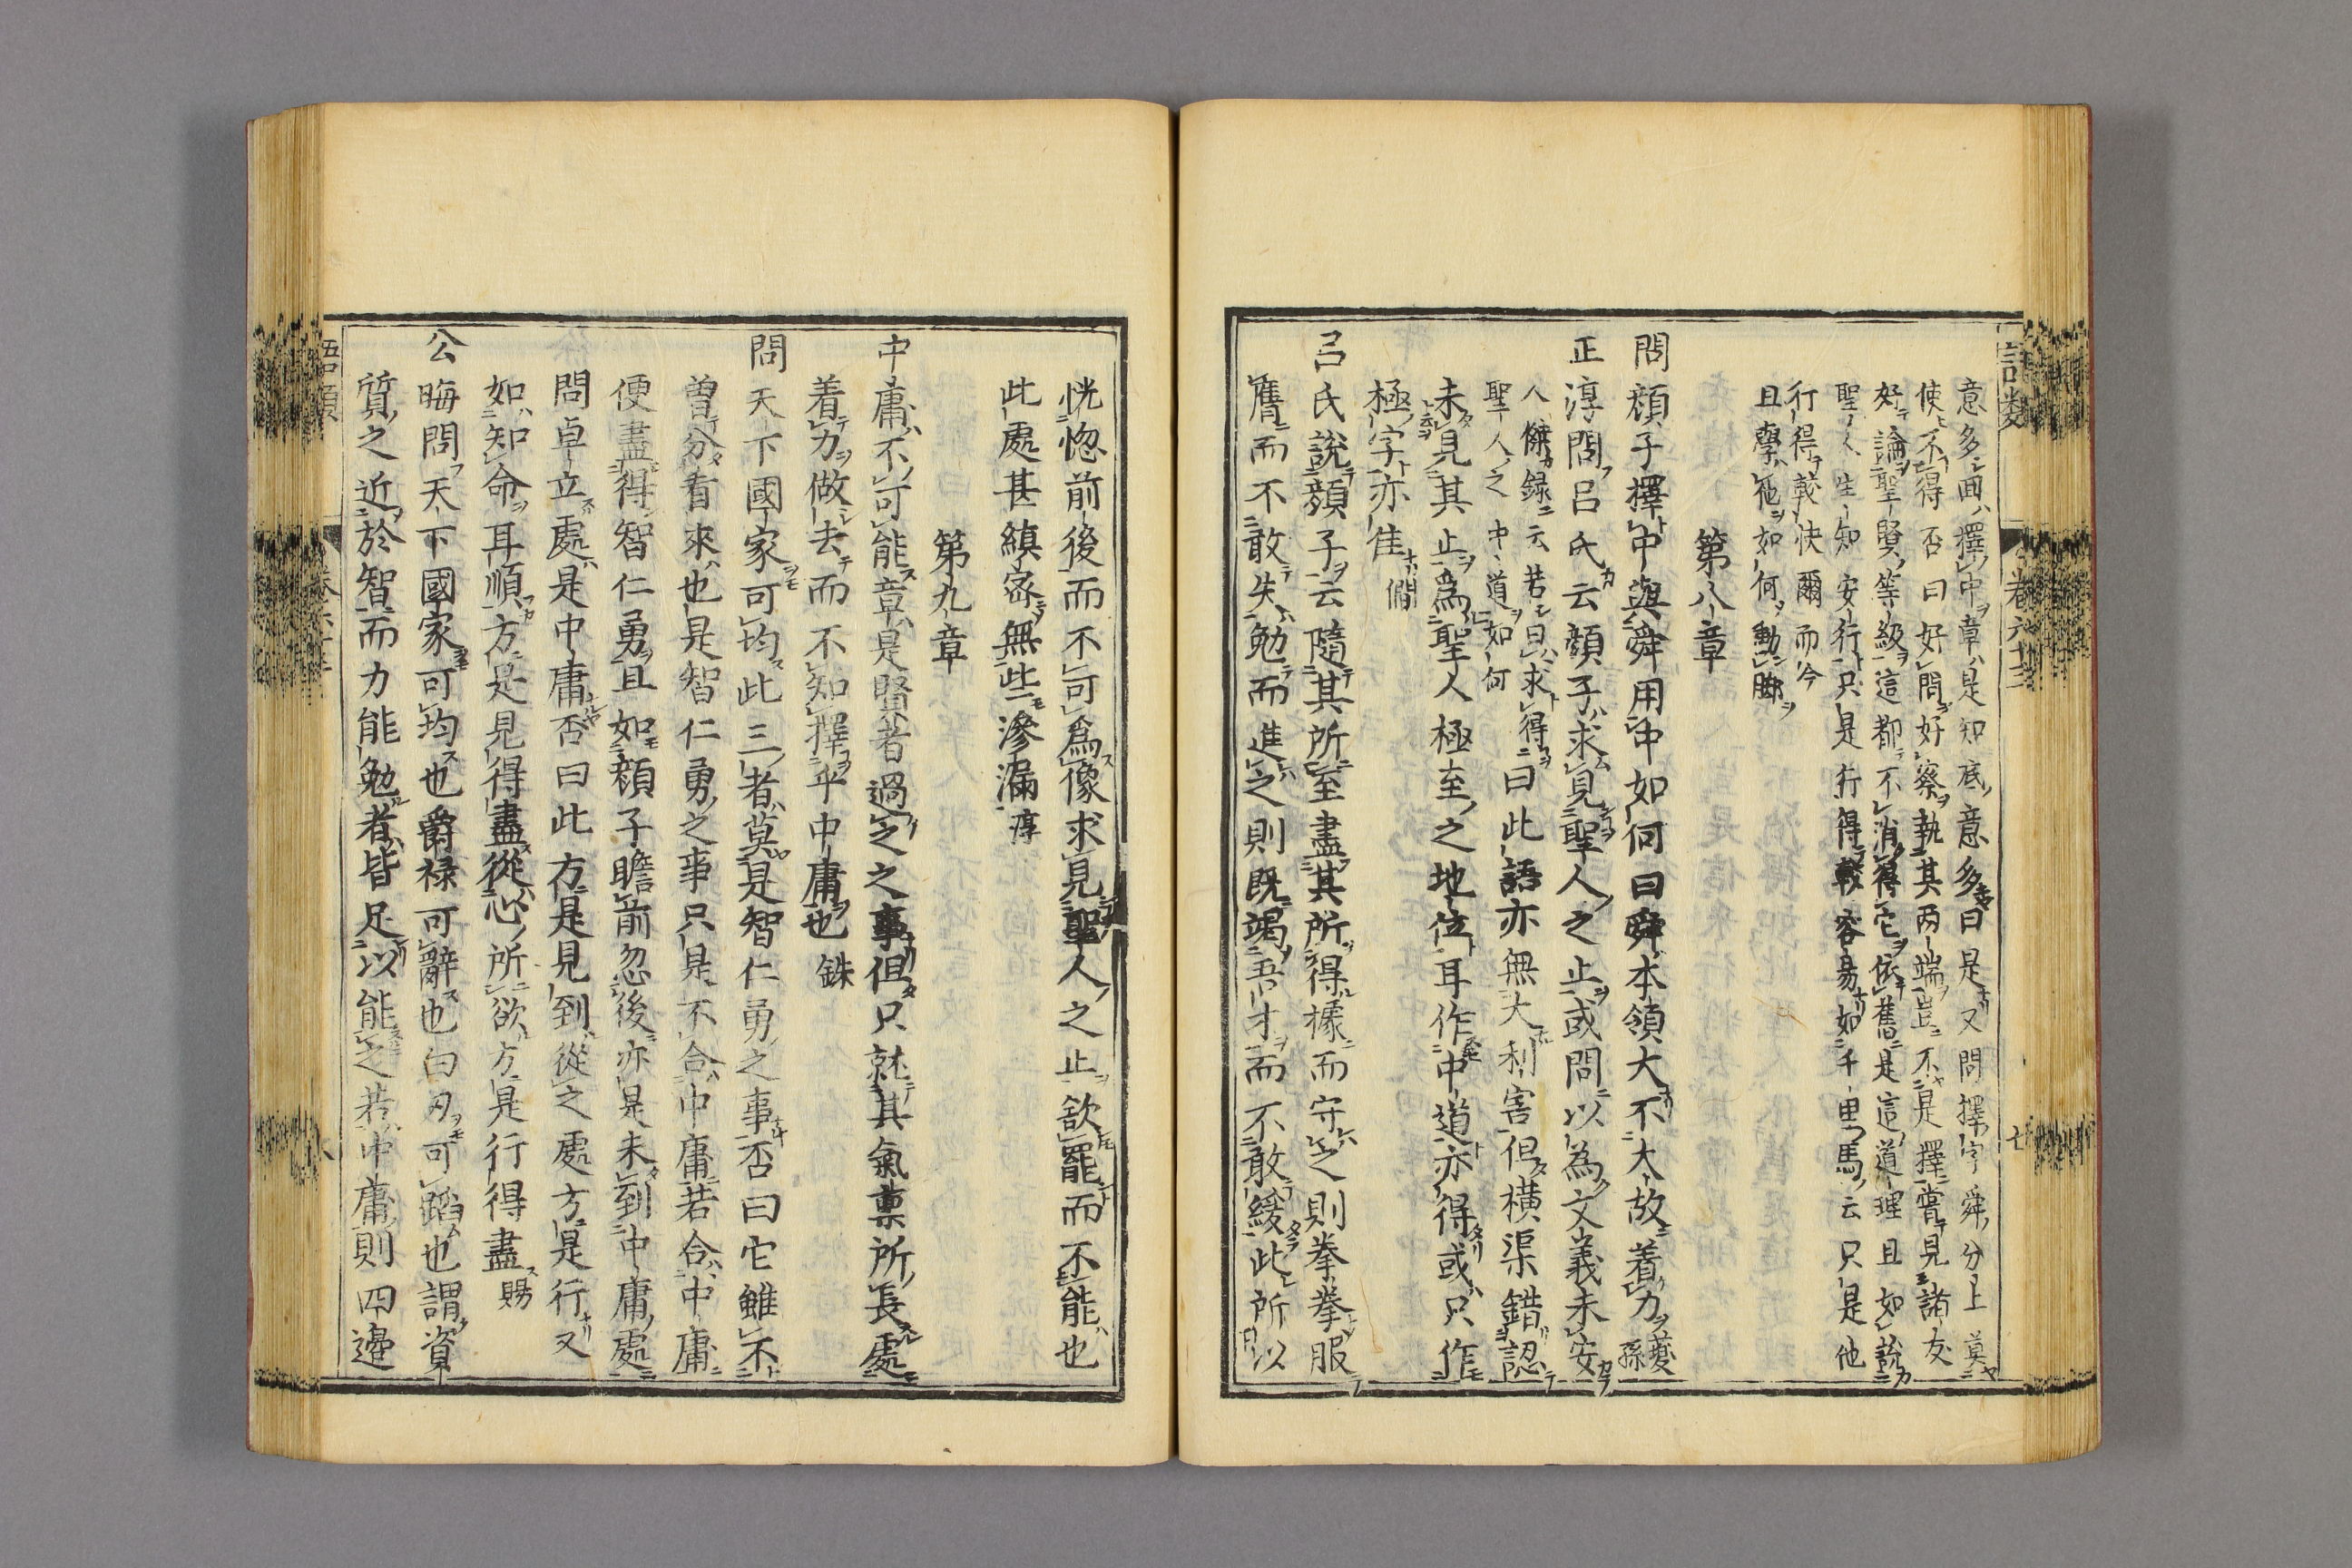 意多面擇中章是知底意多曰是又問擇字舜分上莫
使不得否曰好問好察執其两端豈不是擇嘗見諸友
好論聖賢等級這都不消得它依舊是這道理且如說
聖人生知安行只是行得較容易如千里馬云只是他
行得較快爾而今
且學他如何動脚
第八章
問顔子擇中與舜用中如何曰舜本領大不大故着力夔孫
正淳問呂氏云顔子求見聖人之止或問以為文義未安
人傑録云若曰求得曰此語亦無大利害但横渠錯認
聖人之中道如何
未見其止爲聖人極至之地位耳作中道亦得或只作
極字亦佳㽦
呂氏說顔子云隨其所至盡其所得據而守之則拳拳服
膺而不敢失勉而進之則既竭吾才而不敢緩此所以
恍惚前後而不可爲像求見聖人之止欲罷而不能也
此處甚縝密無些滲漏淳
第九章
中庸不可能章是賢者過之之事但只就其氣稟所長處
着力做去而不知擇乎中庸也銖
問天下國家可均此三者莫是智仁勇之事否曰它雖不
曽分看來也是智仁勇之事只是不合中庸若合中庸
便盡得智仁勇且如顔子瞻前忽後亦是未到中庸處
問卓立處是中庸否曰此方是見到從之處方是行又
如知命耳順方是見得盡從心所欲方是行得盡賜
公晦問天下國家可均也爵禄可辭也白刃可蹈也謂資
質之近於智而力能勉者皆足以能之若中庸則四邊
語類
卷六十三
七
八